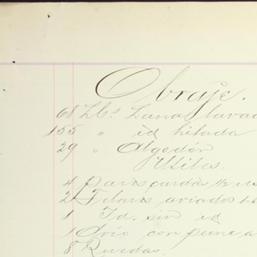 Obraje.
68 Lbs Lana lavad
155 " id hilada
29 " Algodón
Utiles.
4 pares cardas
2 Telares aviados
1 Id. sin id
1 Torno con peine a
8 Ruedas